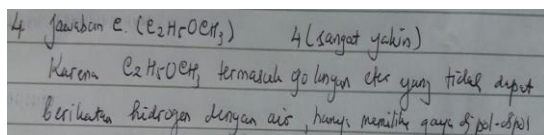 4 Jawaban C. (C2H5OCH3) 4 (sangat yakin)
Karena C2H5OCH3 termasuk golongan eter yang tidak dapat
berikatan hidrogen dengan air, hanya memiliki gaya dipol-dipol